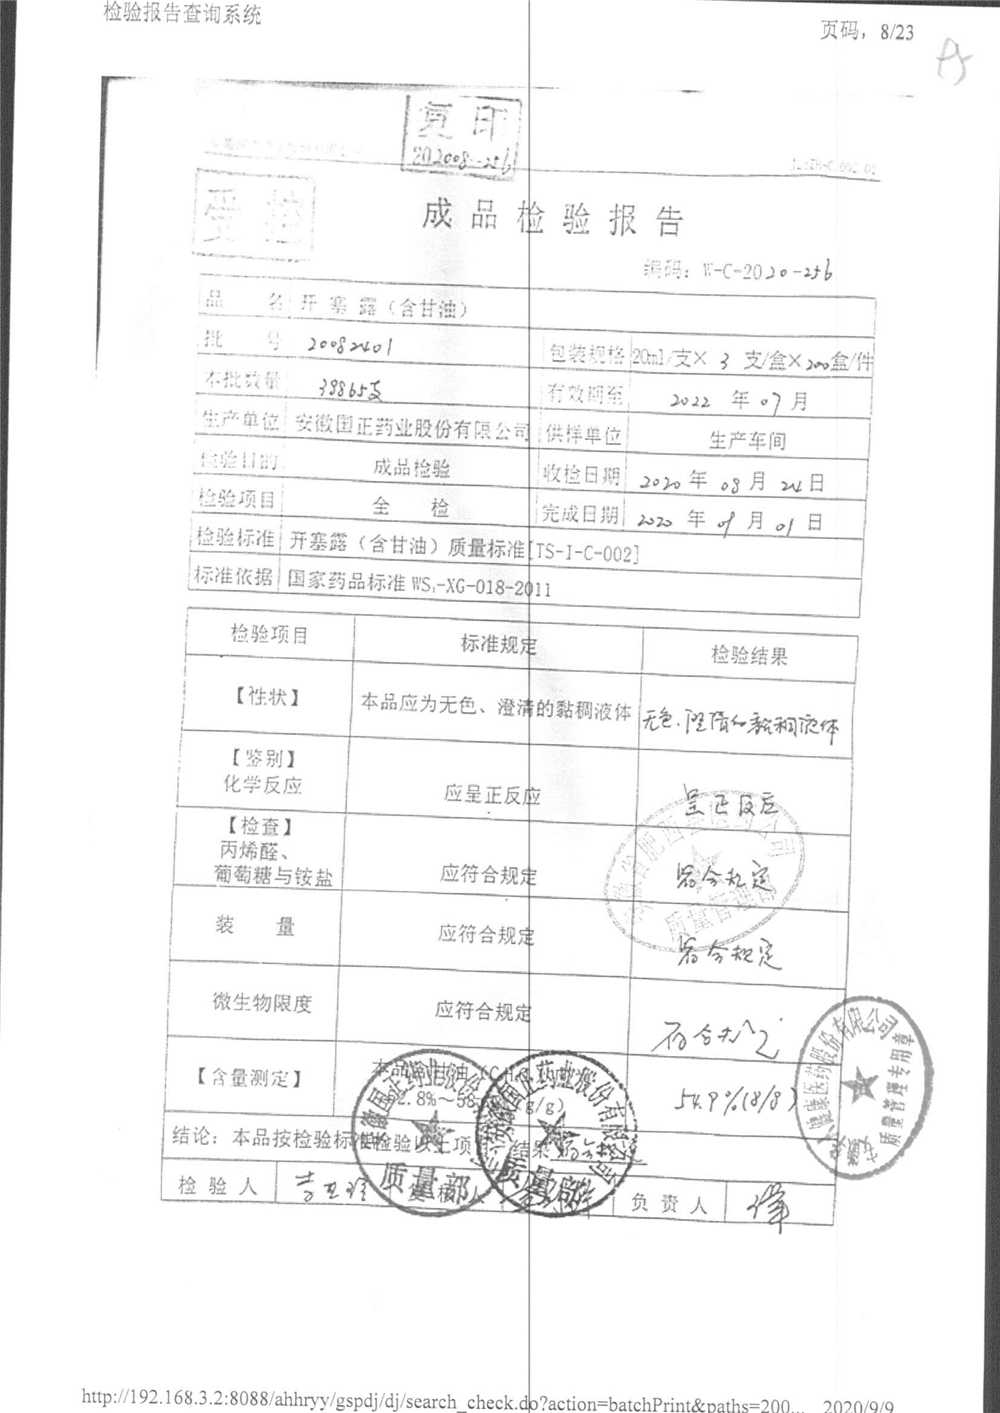 检验报告查询系统
页码，8/23
复印
202008-256
受控
成品检验报告
编码：W-C-2020-256
品名 开塞露（含甘油）
批号 20082401 包装规格 20ml/支×3支/盒×200盒/件
本批数量 39865支 有效期至 2022年07月
生产单位 安徽国正药业股份有限公司 供样单位 生产车间
检验目的 成品检验 收检日期 2020年08月24日
检验项目 全检 完成日期 2020年09月01日
检验标准 开塞露（含甘油）质量标准[TS-I-C-002]
标准依据 国家药品标准WS₁-XG-018-2011
检验项目 标准规定 检验结果
【性状】 本品应为无色、澄清的黏稠液体 无色、澄清的黏稠液体
【鉴别】
化学反应 应呈正反应 呈正反应
【检查】
丙烯醛、
葡萄糖与铵盐 应符合规定 符合规定
装量 应符合规定 符合规定
微生物限度 应符合规定 符合规定
【含量测定】 54.9%(g/g)
结论：本品按检验标准检验以上项 结果
检验人 负责人
质量部
质量部
质量管理专用章
http://192.168.3.2:8088/ahhryy/gspdj/dj/search_check.do?action=batchPrint&paths=200... 2020/9/9